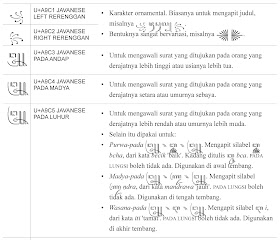 U+A9C1 JAVANESE LEFT RERENGGAN
• Karakter ornamental. Biasanya untuk mengapit judul, misalnya
U+A9C2 JAVANESE RIGHT RERENGGAN
• Bentuknya sangat bervariasi, misalnya
U+A9C3 JAVANESE PADA ANDAP
• Untuk mengawali surat yang ditujukan pada orang yang derajatnya lebih tinggi atau usianya lebih tua.
U+A9C4 JAVANESE PADA MADYA
• Untuk mengawali surat yang ditujukan pada orang yang derajatnya setara atau umurnya sebaya.
U+A9C5 JAVANESE PADA LUHUR
• Untuk mengawali surat yang ditujukan pada orang yang derajatnya lebih rendah atau umurnya lebih muda.
• Selain itu dipakai untuk:
• Purwa-pada Mengapit silabel
becha, dari kata becik 'baik'. Kadang ditulis bca. PADA LUNGSI boleh tidak ada. Digunakan di awal tembang.
• Madya-pada Mengapit silabel
ndra, dari kata mandrawa 'jauh'. PADA LUNGSI boleh tidak ada. Digunakan di tengah tembang.
• Wasana-pada Mengapit silabel i,
dari kata iti 'tamat'. PADA LUNGSI boleh tidak ada. Digunakan di akhir tembang.